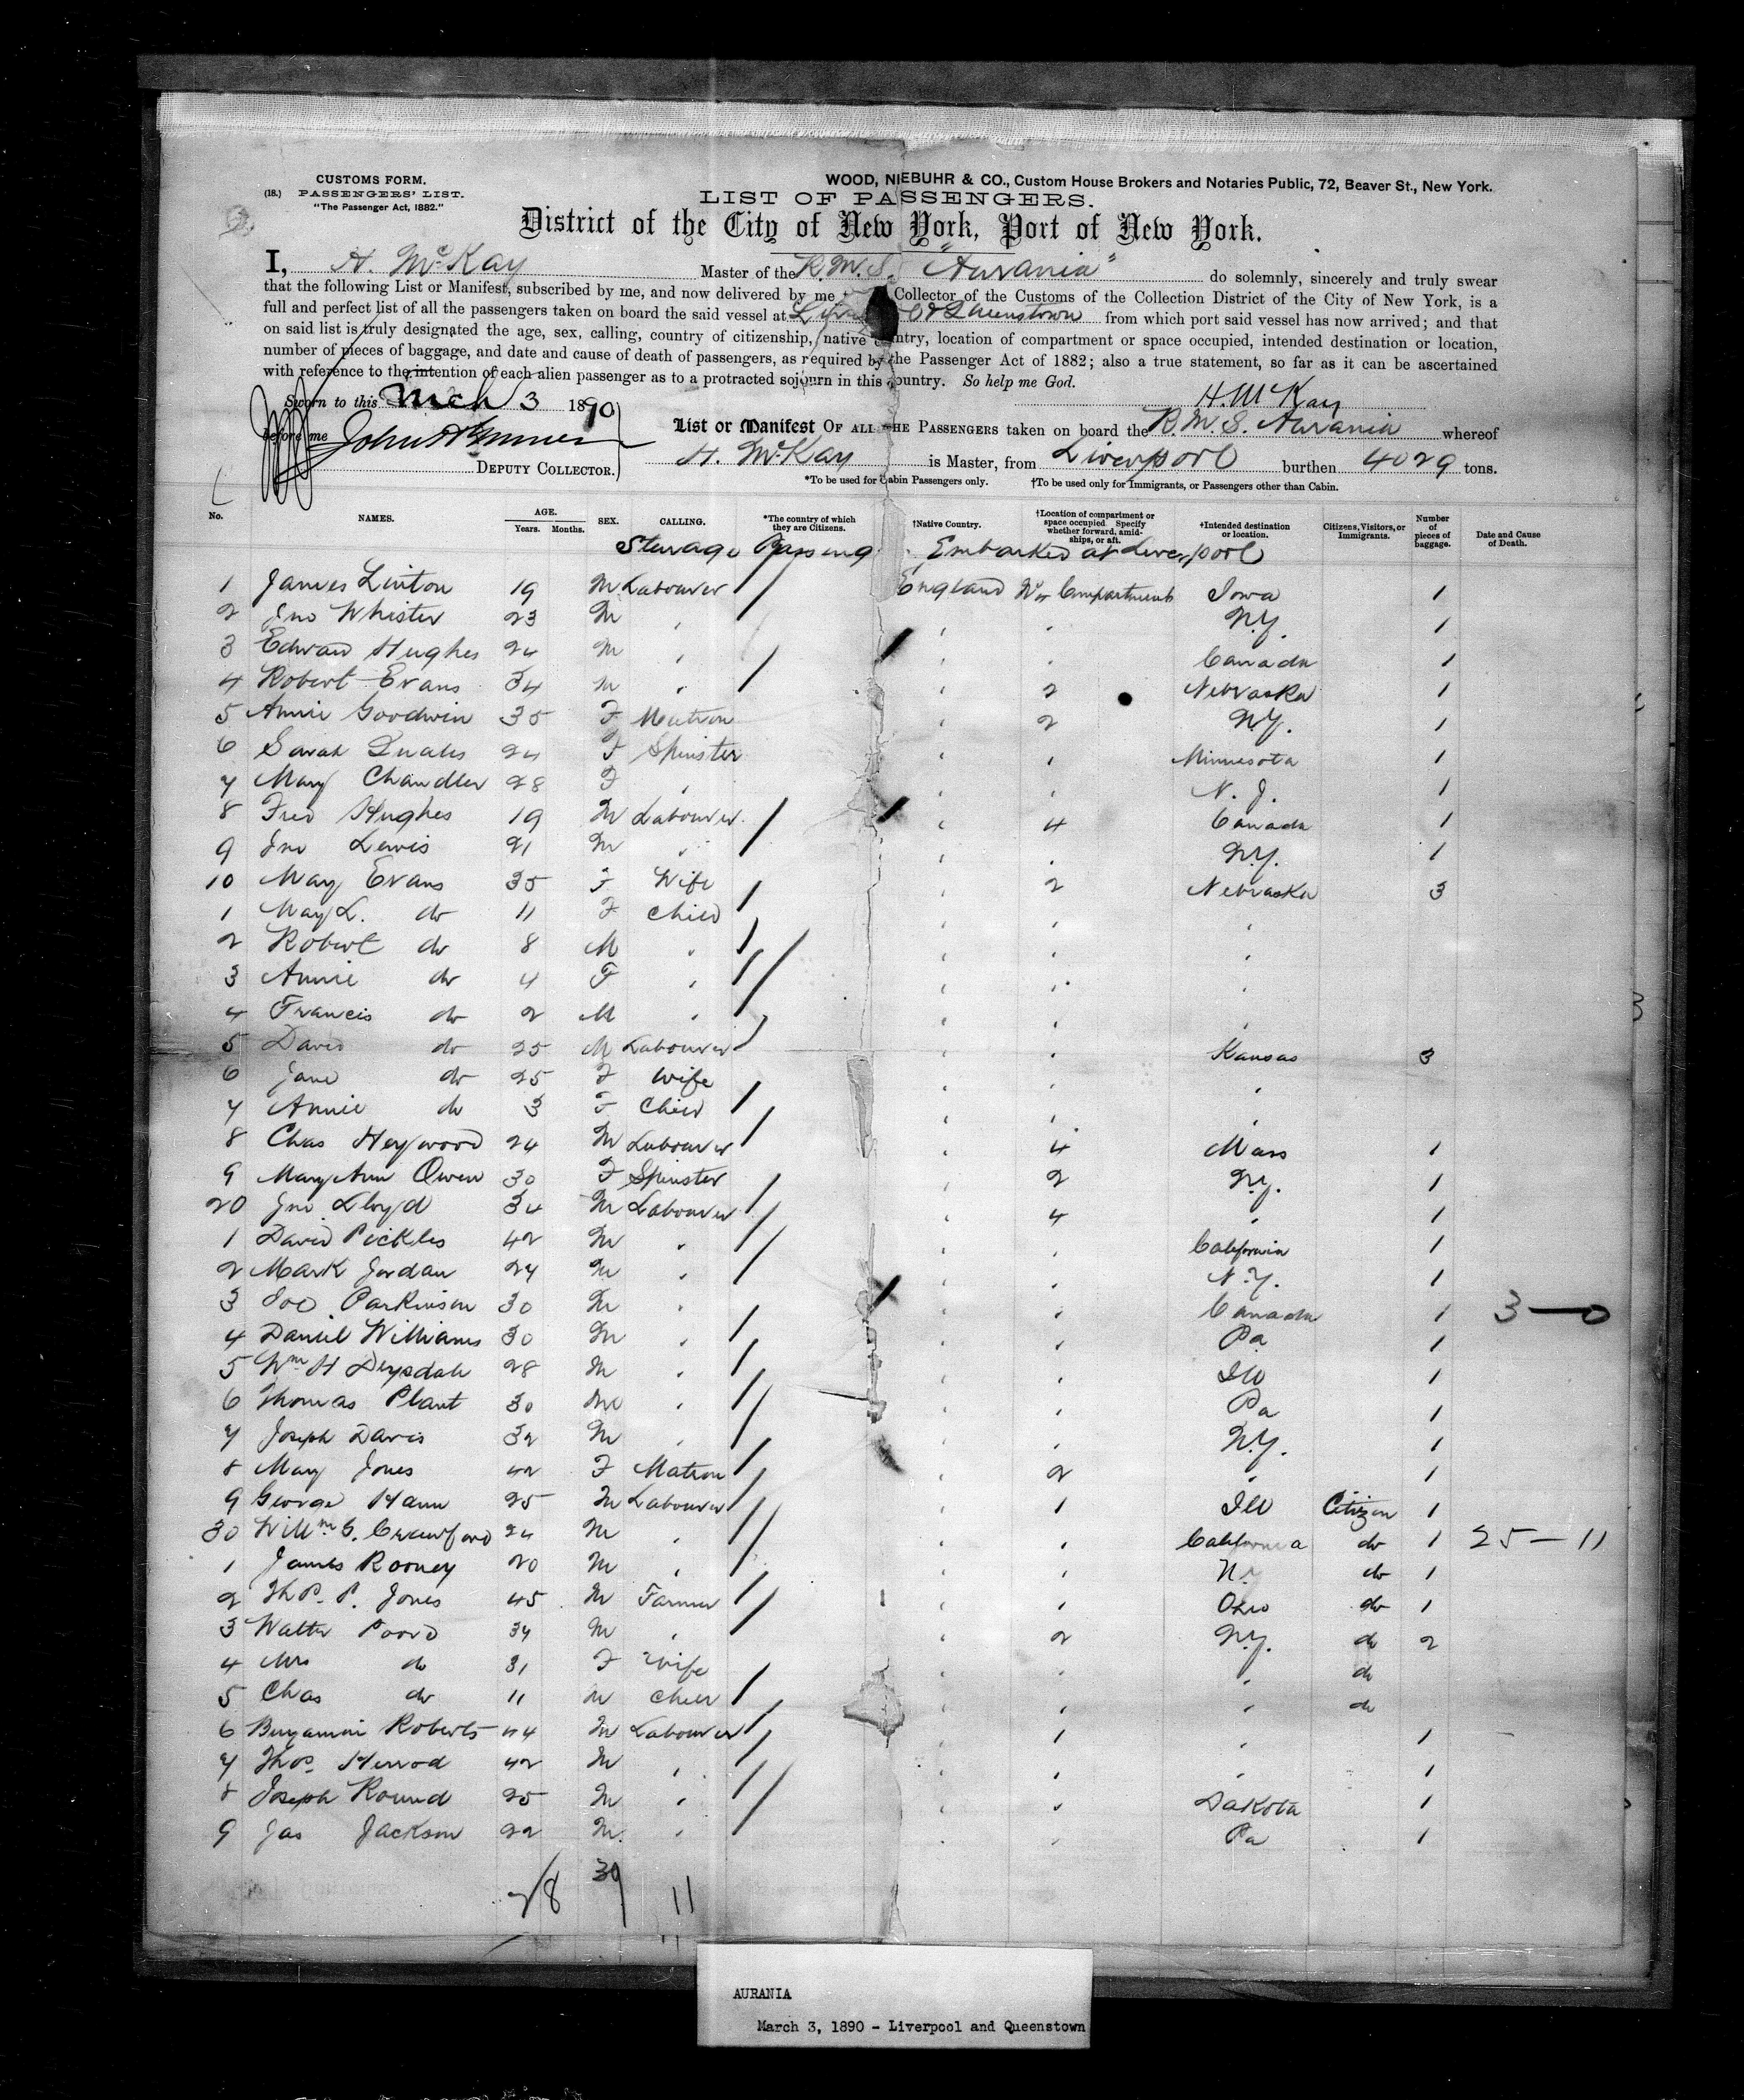 CUSTOMS FORM.
(18.) PASSENGERS' LIST.
"The Passenger Act, 1882."
WOOD, NIEBUHR & CO., Custom House Brokers and Notaries Public, 72, Beaver St., New York.
LIST OF PASSENGERS.
District of the City of New York, Port of New York.
I, H. McKay Master of the R.M.S. "Aurania" do solemnly, sincerely and truly swear
that the following List or Manifest, subscribed by me, and now delivered by me Collector of the Customs of the Collection District of the City of New York, is a
full and perfect list of all the passengers taken on board the said vessel at & Queenstown from which port said vessel has now arrived; and that
on said list is truly designated the age, sex, calling, country of citizenship, native country, location of compartment or space occupied, intended destination or location,
number of pieces of baggage, and date and cause of death of passengers, as required by the Passenger Act of 1882; also a true statement, so far as it can be ascertained
with reference to the intention of each alien passenger as to a protracted sojourn in this country. So help me God.
H. McKay
Sworn to this Mch 3 1890
before me John
DEPUTY COLLECTOR.
List or Manifest OF ALL THE PASSENGERS taken on board the R.M.S. Aurania whereof
H. McKay is Master, from Liverpool burthen 4029 tons.
*To be used for Cabin Passengers only. †To be used only for Immigrants, or Passengers other than Cabin.
No. NAMES. AGE. Years. Months. SEX. CALLING. *The country of which they are Citizens. †Native Country. †Location of compartment or space occupied. Specify whether forward, amidships, or aft. †Intended destination or location. Citizens, Visitors, or Immigrants. Number of pieces of baggage. Date and Cause of Death.
Steerage Passeng Embarked at Liverpool
1 James Linton 19 M Labourer England No Compartment Iowa 1
2 Jno Whister 23 M " " " N.Y. 1
3 Edward Hughes 24 M " " " Canada 1
4 Robert Evans 34 M " " 2 Nebraska 1
5 Annie Goodwin 35 F Matron " 2 N.Y. 1
6 Sarah 24 F Spinster " " Minnesota 1
7 Mary Chandler 28 F " " " N.J. 1
8 Fred Hughes 19 M Labourer " 4 Canada 1
9 Jno Lewis 21 M " " " N.Y. 1
10 Mary Evans 35 F Wife " 2 Nebraska 3
1 Mary L. do 11 F Child " " "
2 Robert do 8 M " " " "
3 Annie do 4 F " " " "
4 Francis do 2 M " " " "
5 David do 25 M Labourer " " Kansas 3
6 Jane do 25 F Wife " " "
7 Annie do 3 F Child " " "
8 Chas Heywood 24 M Labourer " 4 Mass 1
9 Mary Ann Owen 30 F Spinster " 2 N.Y. 1
20 Jno Lloyd 34 M Labourer " 4 " 1
1 David Pickles 42 M " " " California 1
2 Mark Jordan 27 M " " " N.Y. 1
3 Parkinson 30 M " " " Canada 1 3—0
4 Daniel Williams 30 M " " " Pa 1
5 Wm H Drysdale 28 M " " " Ill 1
6 Thomas Plant 30 M " " " Pa 1
7 Joseph Davis 32 M " " " N.Y. 1
8 Mary Jones 42 F Matron " 2 " 1
9 George Hann 25 M Labourer " 1 Ill Citizen 1
30 Willm G. Crawford 24 M " " " California do 1 25—11
1 James Rooney 20 M " " " N. do 1
2 Thos. P. Jones 45 M Farmer " " Ohio do 1
3 Walter 34 M " " 2 N.Y. do 2
4 Mrs do 31 F Wife " " " do
5 Chas do 11 M Child " " " do
6 Benjamin Roberts 44 M Labourer " 1 " 1
7 Thos. Herrod 42 M " " " " 1
8 Joseph Round 25 M " " " Dakota 1
9 Jas Jackson 22 M " " " Pa 1
28 39 11
AURANIA
March 3, 1890 - Liverpool and Queenstown